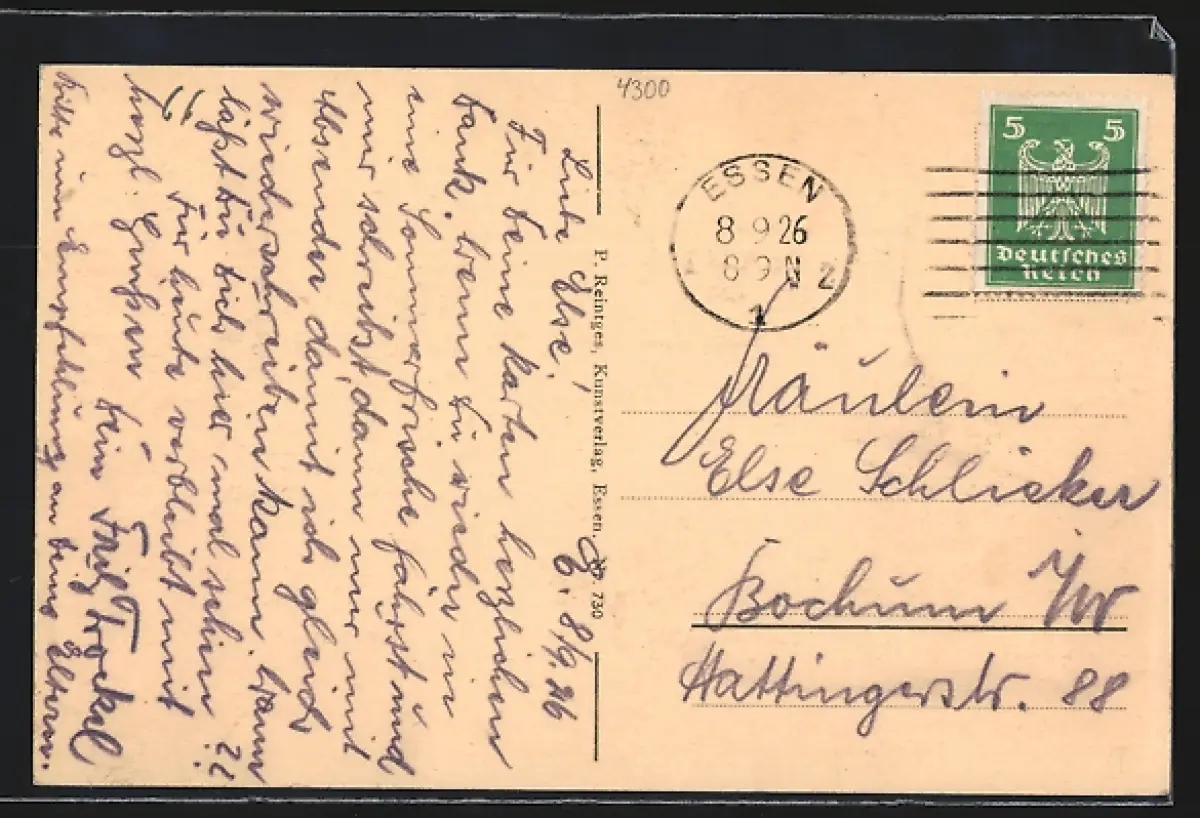 4300
ESSEN
8 9 26
8-9 N
2
1
5 5
Deutsches
Reich
Fräulein
Else Schlicker
Bochum i/W
Hattingerstr. 88
P. Reintges, Kunstverlag, Essen. 730
E. 8/9. 26
Liebe Else!
Für Deine Karten herzlichen
Dank. Wenn Du wieder in
eine Sommerfrische fährst und
mir schreibst, dann nur mit
Absender, damit ich gleich
wiederschreiben kann. Wann
läßt Du Dich hier mal sehen??
Für heute verbleibt mit
herzl. Grüßen Dein
Fritz
Bitte um Empfehlung an Deine Eltern.